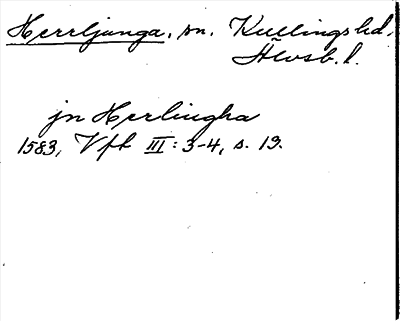 Herrljunga, sn. Kullings hd,
Älvsb. l.
jn Herlingha
1583, Vft III: 3-4, s. 19.